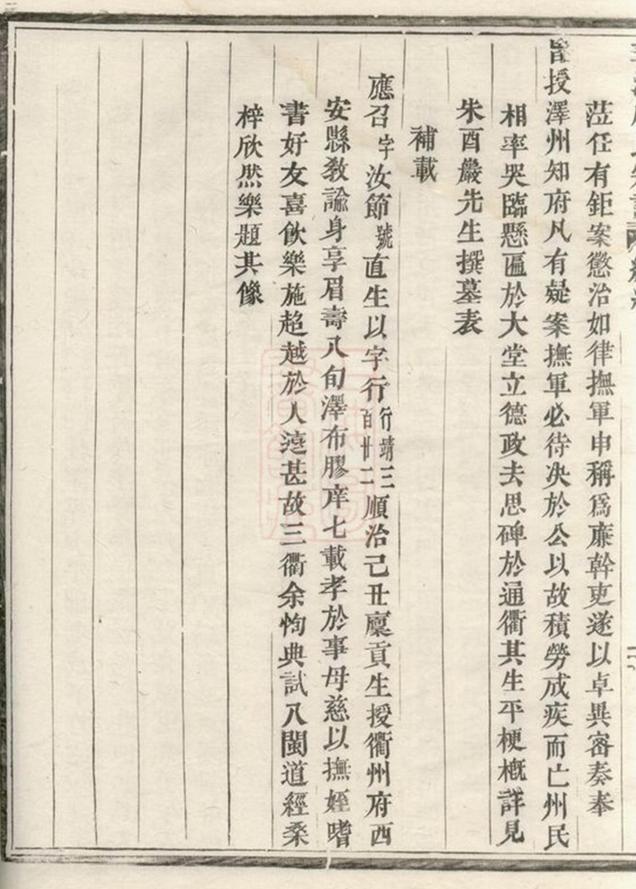 蒞任有鉅案懲治如律撫軍申稱爲亷幹吏遂以卓異審奏奉
旨授澤州知府凡有疑案撫軍必待决於公以故積勞成疾而亡州民
相率哭臨懸匾於大堂立德政去思碑於通衢其生平梗槪詳見
朱酉嚴先生撰墓表
補載
應召字汝節號直生以字行行靖三百廿二順治己丑廩貢生授衢州府西
安縣敎諭身享眉壽八旬澤布膠庠七載孝於事母慈以撫姪嗜
書好友喜飮樂施超越於人遠甚故三衢余恂典試八閩道經桑
梓欣然樂題其像